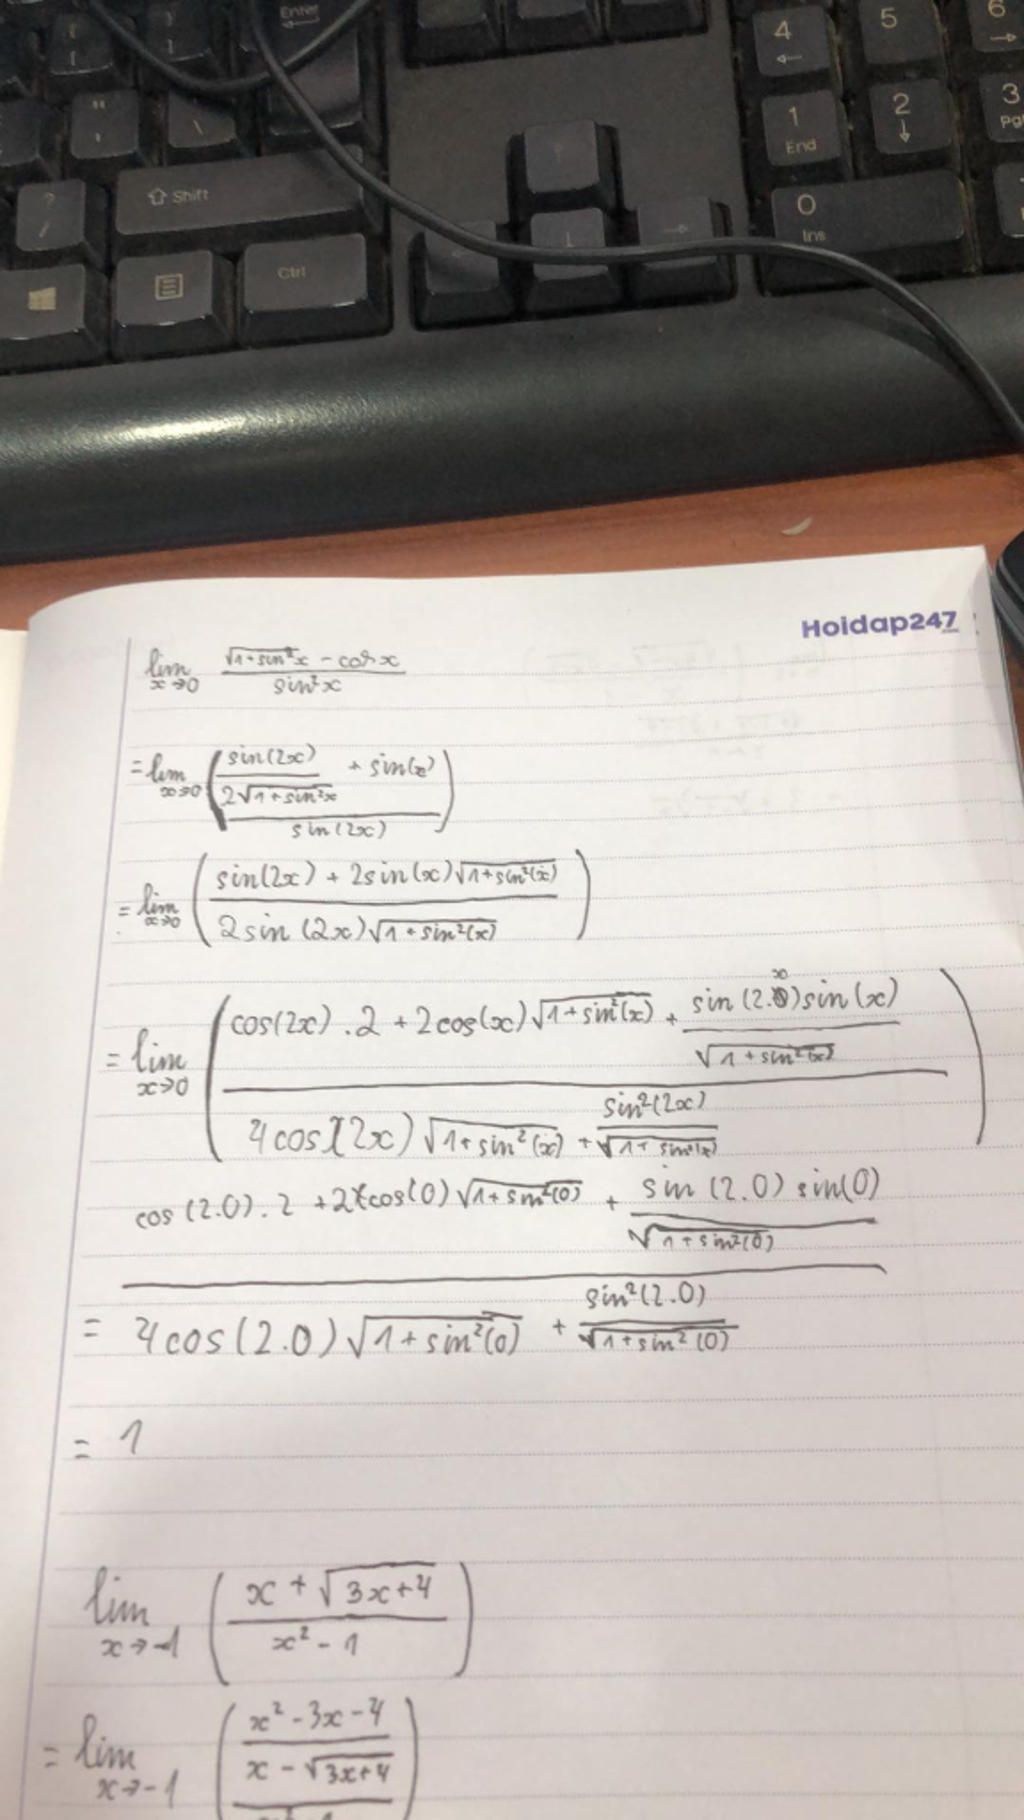 Enter
4
5
6
1
End
2
3
0
Ins
Shift
Ctrl
Hoidap247
lim x→0 (√(1+sin²x) - cos x)/(sin²x)
= lim x→0 ((sin(2x)/(2√(1+sin²x)) + sin(x))/(sin(2x)))
= lim x→0 ((sin(2x) + 2sin(x)√(1+sin²(x)))/(2sin(2x)√(1+sin²(x))))
= lim x→0 ((cos(2x).2 + 2cos(x)√(1+sin²(x)) + (sin(2.x)sin(x))/√(1+sin²(x)))/(4cos(2x)√(1+sin²(x)) + sin²(2x)/√(1+sin²(x))))
= (cos(2.0).2 + 2cos(0)√(1+sin²(0)) + (sin(2.0)sin(0))/√(1+sin²(0)))/(4cos(2.0)√(1+sin²(0)) + sin²(2.0)/√(1+sin²(0)))
= 1
lim x→-1 ((x + √(3x+4))/(x² - 1))
= lim x→-1 ((x² - 3x - 4)/(x - √(3x+4))